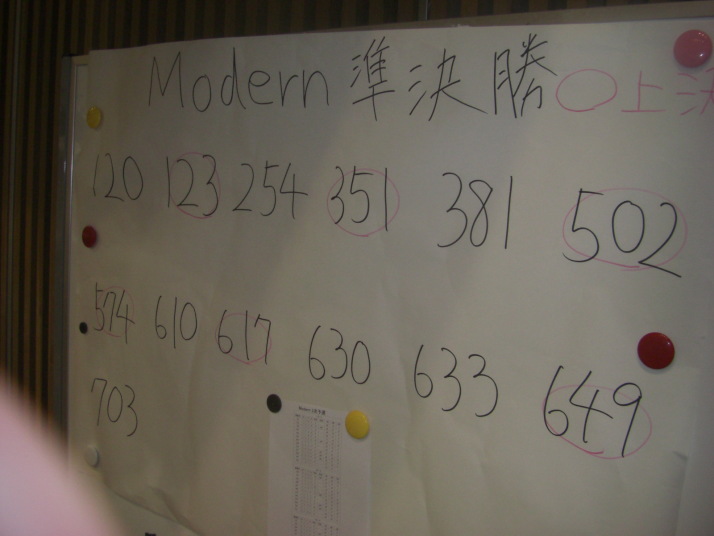 Modern 準決勝 〇上決
120 123 254 351 381 502
574 610 617 630 633 649
703